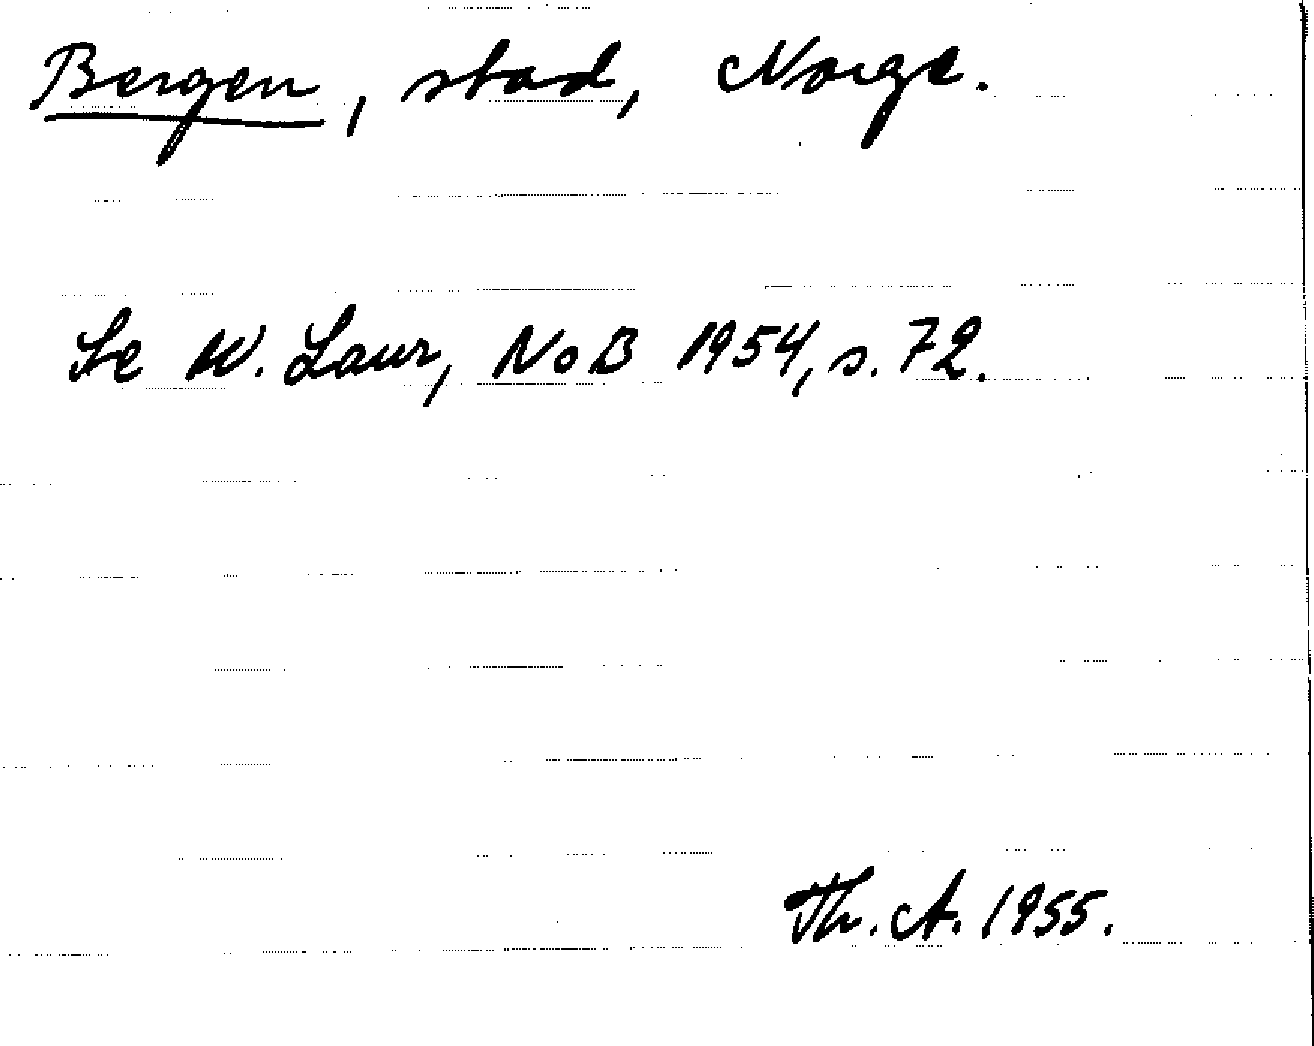 Bergen, stad, Norge.
Se W. Laur, NoB 1954, s. 72.
Th. A. 1955.